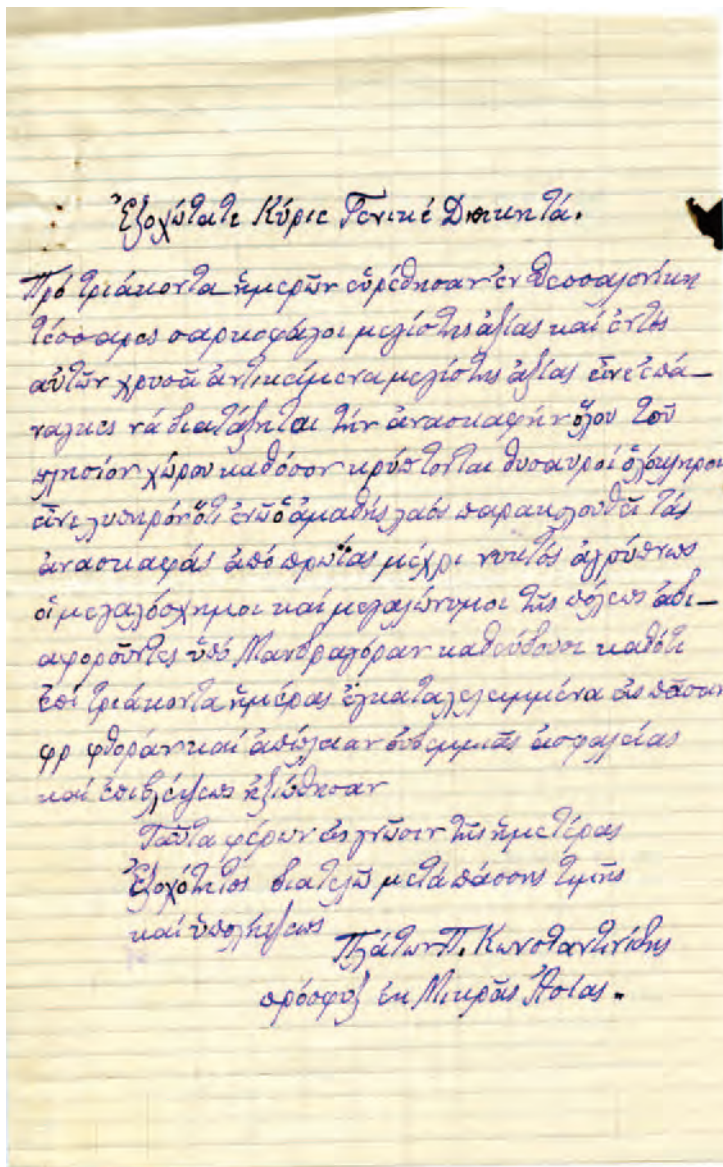 Ἐξοχώτατε Κύριε Γενικέ Διοικητά.
Πρό τριάκοντα ἡμερῶν εὑρέθησαν ἐν Θεσσαλονίκῃ
τέσσαρες σαρκοφάγοι μεγίστης ἀξίας καί ἐντός
αὐτῶν χρυσᾶ ἀντικείμενα μεγίστης ἀξίας εἶνε ἐπά–
ναγκες νά διατάξηται τήν ἀνασκαφήν ὅλου τοῦ
πλησίον χώρου καθόσον κρύπτονται θυσαυροί ὁλόκληροι
εἶνε λυπηρόν ὅτι ἐνῶ ὁ ἀμαθής λαός παρακολουθεῖ τάς
ἀνασκαφάς ἀπό πρωΐας μέχρι νυκτός ἀγρύπνως
οἱ μεγαλόσχημοι καί μεγαλώνυμοι τῆς πόλεως ἀδι–
αφοροῦντες ὑπό Μανδραγόραν καθεύδουσι καθότι
ἐπί τριάκοντα ἡμέρας ἐγκαταλελειμμένα εἰς πᾶσαν
φρ φθοράν καί ἀπώλειαν οὐδεμμιᾶς ἀσφαλείας
καί ἐπιβλέψεως ἠξιώθησαν
Ταῦτα φέρων εἰς γνῶσιν τῆς ἡμετέρας
Ἐξοχότητος διατελῶ μετά πάσης τιμῆς
καί ὑπολήψεως
Πλάτων Π. Κωνσταντινίδης
πρόσφυξ ἐκ Μικρᾶς Ἀσίας.